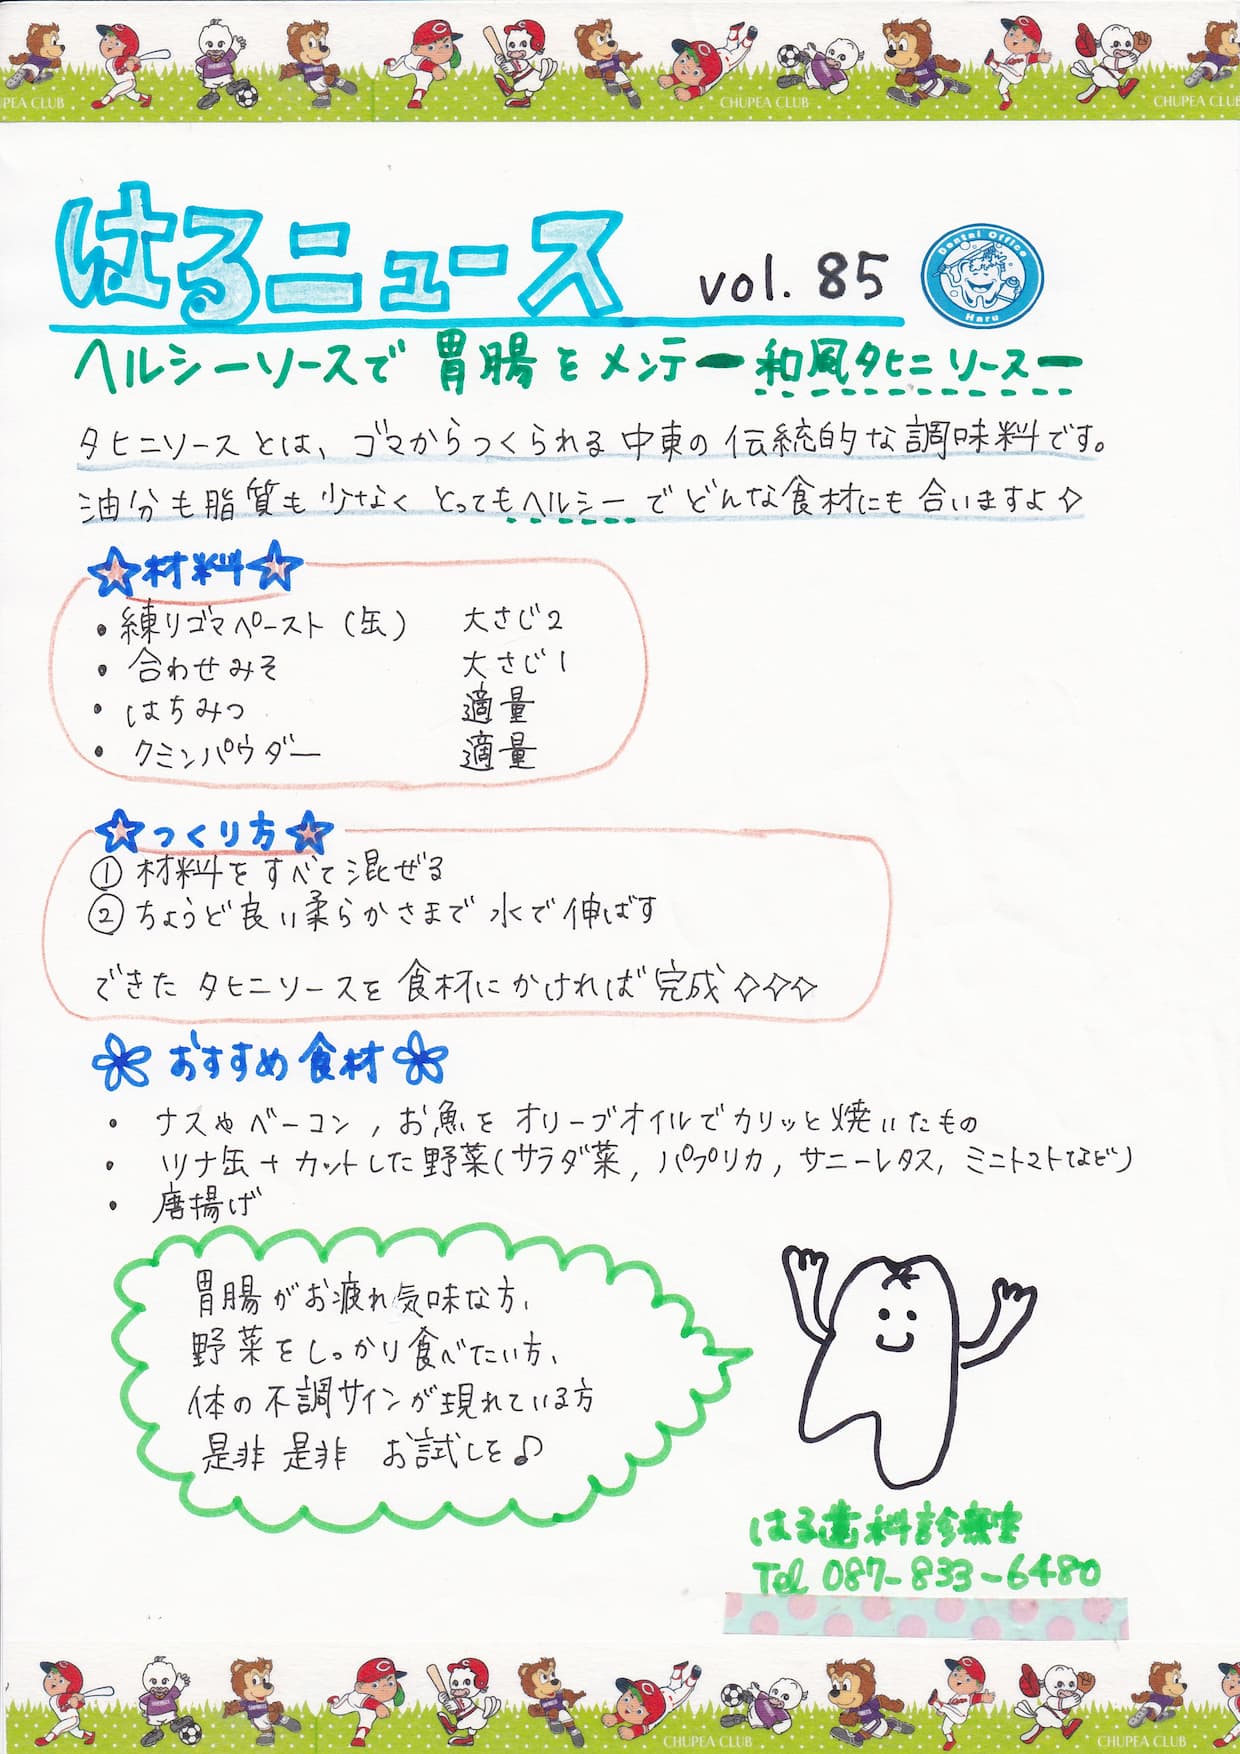 PEA CLUB
CHUPEA CLUB
CHUPEA CLUB
はるニュース vol. 85
Dental Office
Haru
ヘルシーソースで胃腸をメンテー和風タヒニソースー
タヒニソースとは、ゴマからつくられる中東の伝統的な調味料です。
油分も脂質も少なくとってもヘルシーでどんな食材にも合いますよ✧
☆材料☆
・練りゴマペースト(缶) 大さじ2
・合わせみそ 大さじ1
・はちみつ 適量
・クミンパウダー 適量
☆つくり方☆
①材料をすべて混ぜる
②ちょうど良い柔らかさまで水で伸ばす
できたタヒニソースを食材にかければ完成✧✧✧
おすすめ食材
・ナスやベーコン,お魚をオリーブオイルでカリッと焼いたもの
・ツナ缶+カットした野菜(サラダ菜,パプリカ,サニーレタス,ミニトマトなど)
・唐揚げ
胃腸がお疲れ気味な方、
野菜をしっかり食べたい方、
体の不調サインが現れている方
是非是非 お試しを♪
はる歯科診療室
Tel 087-833-6480
CHUPEA CLUB
CHUPEA CLUB